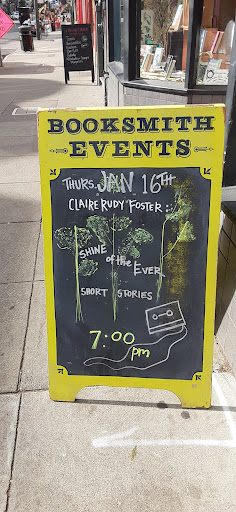 BOOKSMITH
EVENTS
THURS. JAN 16TH
CLAIRE RUDY FOSTER:
SHINE
of the
EVER
SHORT STORIES
7:00
pm